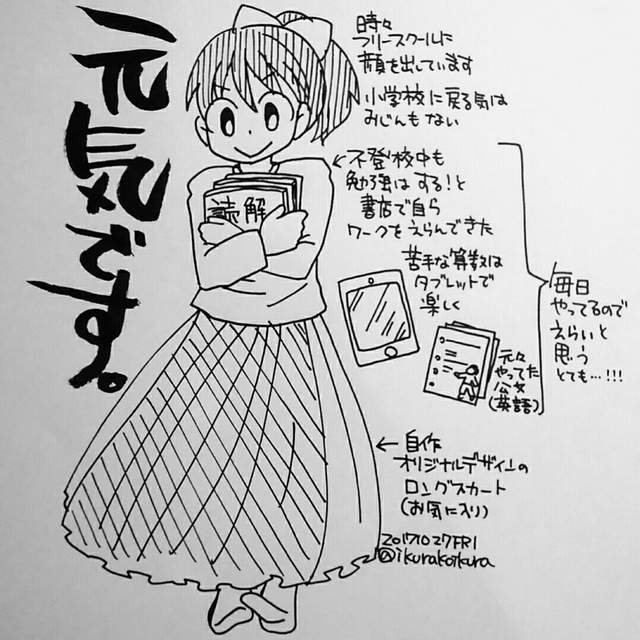 元気です。
時々
フリースクールに
顔を出しています
小学校に戻る気は
みじんもない
←不登校中も
勉強はする！と
書店で自ら
ワークをえらんできた
読解
苦手な算数は
タブレットで
楽しく
元々
やってた
公文
(英語)
毎日
やってるので
えらいと
思う
とても…!!!
←自作
オリジナルデザインの
ロングスカート
(お気に入り)
20171027FRI
@ikurakoikura